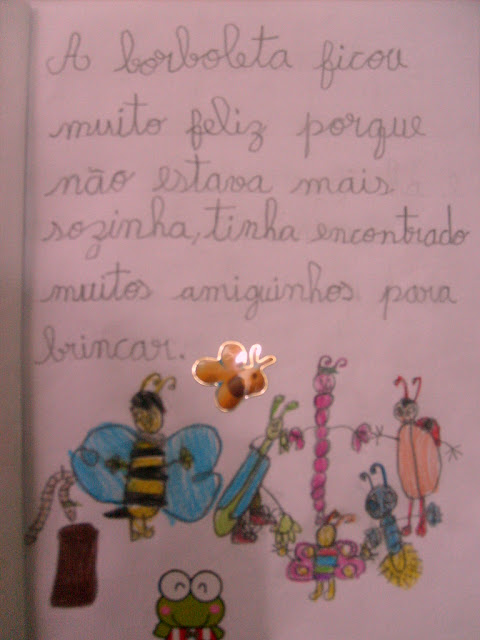 A borboleta ficou
muito feliz porque
não estava mais
sozinha, tinha encontrado
muitos amiguinhos para
brincar.